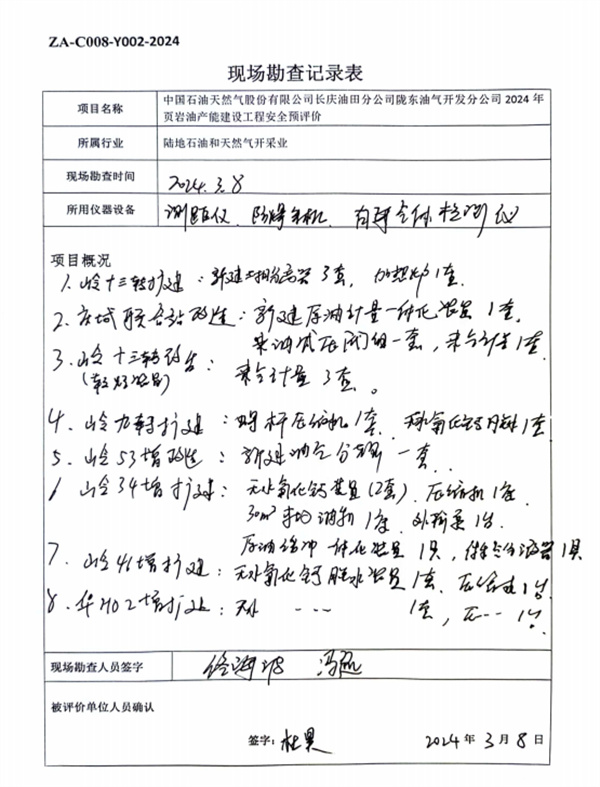 ZA-C008-Y002-2024
现场勘查记录表
项目名称
中国石油天然气股份有限公司长庆油田分公司陇东油气开发分公司 2024 年
页岩油产能建设工程安全预评价
所属行业
陆地石油和天然气开采业
现场勘查时间
2024.3.8
所用仪器设备
测距仪、防爆手机、有毒气体检测仪
项目概况
1、山岭十三转扩建：新建三相分离器3套，加热炉1套.
2、庆城联合站改造：新建原油计量一体化装置1套.
来油 阀组一套，来气计量1套.
3、岭十三转 ：
来气计量3套。
4、岭九转扩建：压缩机1套、无水氯化钙 1套
5、岭53增改造：新建油气分离 一套.
岭34增扩建：无水氯化钙装置(2套)、压缩机1台.
30m³ 油箱1座、外输泵1台
原油缓冲一体化装置1具，1具
7、岭41增扩建：无水氯化钙脱水装置1套、压缩机1台
8、华H02增扩建：无水 --- 1套，压-- 1台.
现场勘查人员签字
冯
被评价单位人员确认
签字：杜昊
2024 年 3 月 8 日